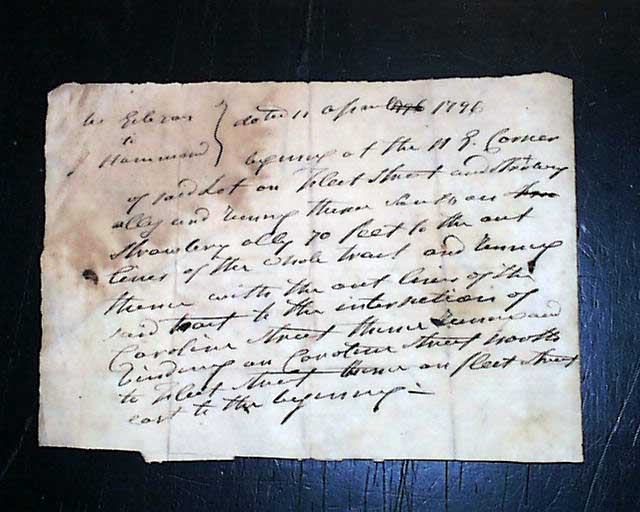 Gibson } dated 11 April 1796 1796
to
Hammond } begining at the N E Corner
of said Lot on Fleet Street and Strabery
ally and runing thence South on thru
Strawbery ally 70 feet to the out
lines of the whole tract and runing
thence with the out lines of the
said tract to the intersection of
Caroline Street thence runing and
Binding on Caroline Street North
to Fleet Street thence on fleet Street
east to the begining